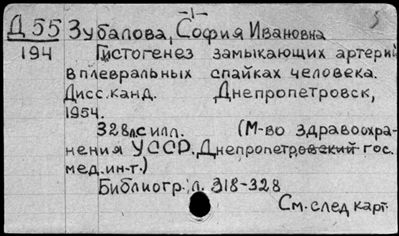 -1-
Д 55 Зубалова, София Ивановна
194 Гистогенез замыкающих артерий
в плевральных спайках человека.
Дисс. канд. Днепропетровск,
1954.
328 л. с илл. (М-во здравоохра-
нения УССР. Днепропетровский гос.
мед. ин-т.)
Библиогр. л. 318-328
См. след карт